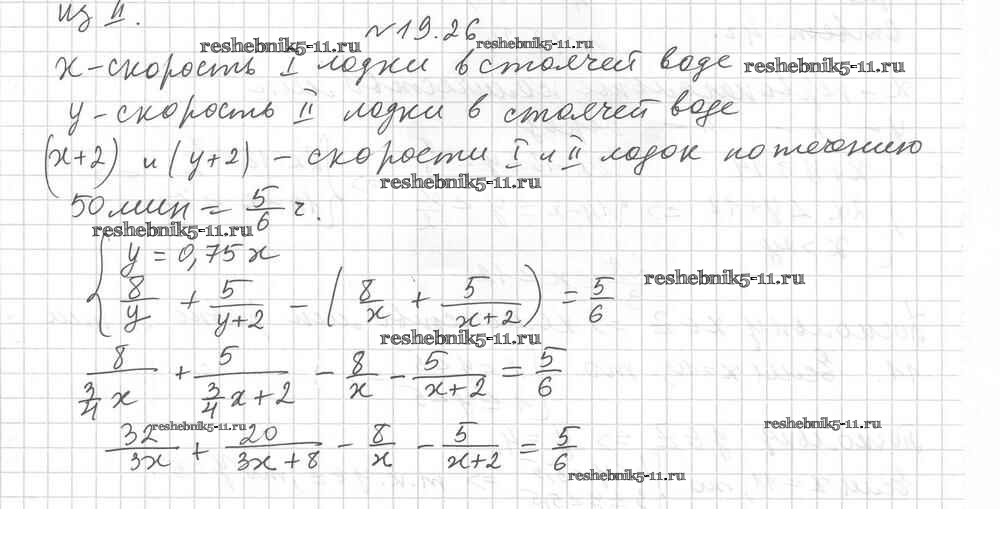 из II.
№19.26
reshebnik5-11.ru reshebnik5-11.ru
x - скорость I лодки в стоячей воде reshebnik5-11.ru
y - скорость II лодки в стоячей воде
(x+2) и (y+2) - скорости I и II лодок по течению
reshebnik5-11.ru
50 мин = 5/6 ч.
reshebnik5-11.ru
{ y = 0,75x
reshebnik5-11.ru
8/y + 5/(y+2) - (8/x + 5/(x+2)) = 5/6
reshebnik5-11.ru
8/(3/4 x) + 5/(3/4 x+2) - 8/x - 5/(x+2) = 5/6
reshebnik5-11.ru reshebnik5-11.ru
32/3x + 20/(3x+8) - 8/x - 5/(x+2) = 5/6
reshebnik5-11.ru